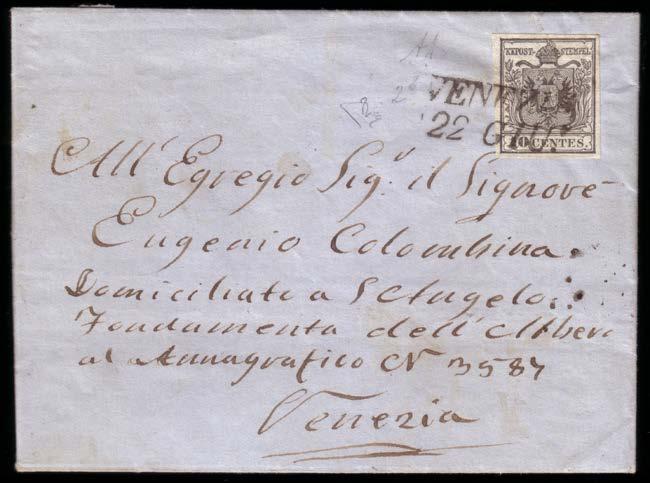 KKPOST-STEMPEL
10 CENTES.
VENEZIA
22 GIU
All' Egregio Sigr il Signore
Eugenio Colombina.
Domiciliato a S Angelo
Fondamenta dell' Albero
al Annagrafico N 3584
Venezia